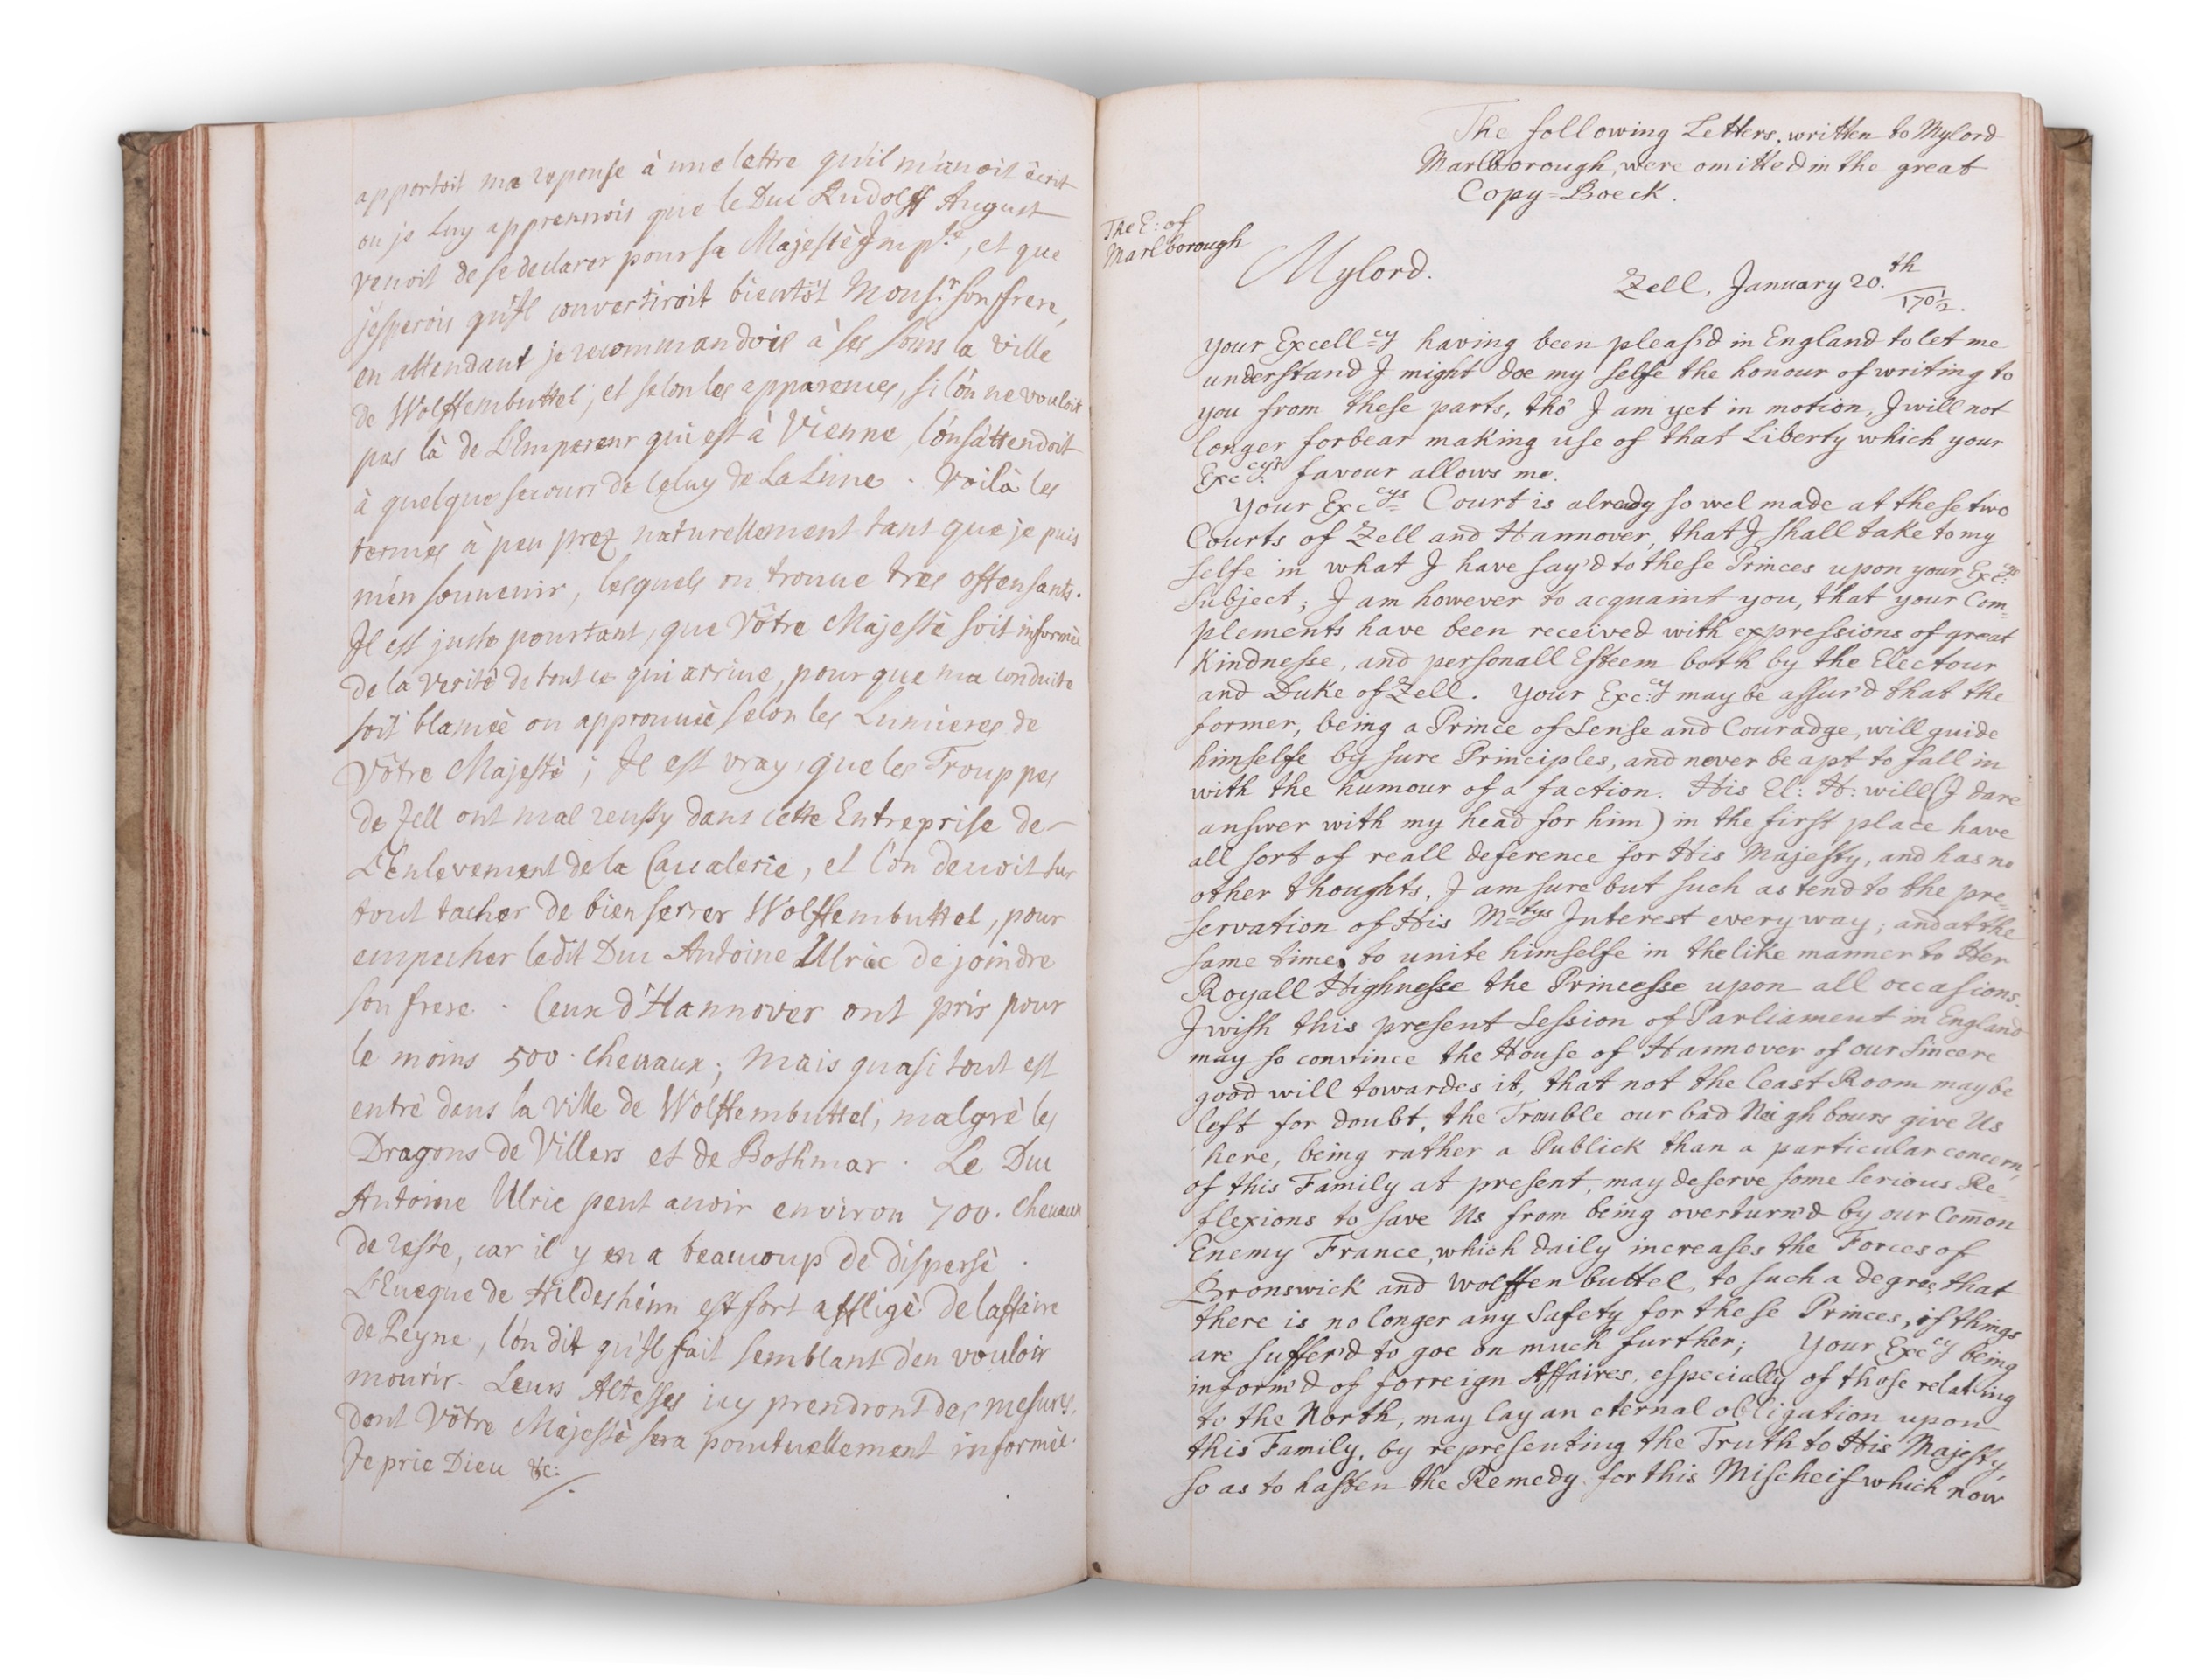 apportoit ma reponse à une lettre qu'il m'auoit ècrit
ou je luy apprennois que le Duc Rudolff August
venoit de se declarer pour sa Majestè Imp.le, et que
j'esperois qu'Il convertiroit bientôt Mons.r son frere,
en attendant je recommandois à ses soins la ville
de Wolffembuttel; et selon les apparences, si l'ón ne vouloit
pas là de L'Empereur qui est à Vienne, l'ón s'attendoit
à quelque secours de Celuy de La Lune. Voilà les
termes à peu prez naturellement tant que je puis
m'en souuenir, lesquels on trouue tres offensants.
Il est juste pourtant, que Vôtre Majestè soit informèe
de la veritè de tout ce qui arriue, pour que ma conduite
soit blamèe ou approuuèe selon les Lumieres de
Vôtre Majestè; Il est vray, que les Trouppes
de Zell ont mal reussy dans cette Entreprise de
L'Enlevement de la Caualerie, et l'ón deuoit sur
tout tacher de bien serrer Wolffembuttel, pour
empecher ledit Duc Antoine Ulric de joindre
son frere. Ceux d'Hannover ont pris pour
le moins 500. Cheuaux; Mais quasi tout est
entrè dans la Ville de Wolffembuttel, malgrè les
Dragons de Villers et de Bothmar. Le Duc
Antoine Ulric peut auoir environ 700. Cheuaux
de reste, car il y en a beaucoup de dispersè.
L'Eueque de Hildesheim est fort affligè de l'affaire
de Peyne, l'ón dit qu'Il fait semblant d'en vouloir
mourir. Leurs Altesses icy prendront des mesures,
dont Vôtre Majestè sera ponctuellement informèe.
Je prie Dieu &c:
The following Letters, written to Mylord
Marlborough, were omitted in the great
Copy=Boeck.
The E: of
Marlborough
Mylord.
Zell, January 20.th
170½.
Your Excell=cy having been pleas'd in England to let me
understand I might doe my selfe the honour of writing to
you from these parts, tho' I am yet in motion, I will not
longer forbear making use of that Liberty which your
Exc:cys favour allows me.
Your Exc=cys Court is already so wel made at these two
Courts of Zell and Hannover, that I shall take to my
selfe in what I have say'd to these Princes upon your Exc:cys
Subject; I am however to acquaint you, that your Com=
plements have been received with expressions of great
Kindnesse, and personall Esteem both by the Electour
and Duke of Zell. Your Exc:cy may be assur'd that the
former, being a Prince of Sense and Couradge, will guide
himselfe by sure Principles, and never be apt to fall in
with the humour of a faction. His El: H: will (I dare
answer with my head for him) in the first place have
all sort of reall deference for His Majesty, and has no
other thoughts, I am sure but such as tend to the pre=
servation of His M=tys Interest every way; and at the
same time, to unite himselfe in the like manner to Her
Royall Highnesse the Princesse upon all occasions.
I wish this present Session of Parliament in England
may so convince the House of Hannover of our Sincere
good will towardes it, that not the least Room may be
left for doubt, the Trouble our bad Neighbours give Us
here, being rather a Publick than a particular concern,
of this Family at present, may deserve some serious Re=
flexions to save Us from being overturn'd by our Com̄on
Enemy France, which daily increases the Forces of
Bronswick and Wolffenbuttel, to such a degree, that
there is no longer any Safety for these Princes, if things
are suffer'd to goe on much further; Your Exc=cy being
inform'd of forreign Affaires, especially of those relating
to the North, may lay an eternal obligation upon
this Family, by representing the Truth to His Majesty,
so as to hasten the Remedy for this Mischeif which now